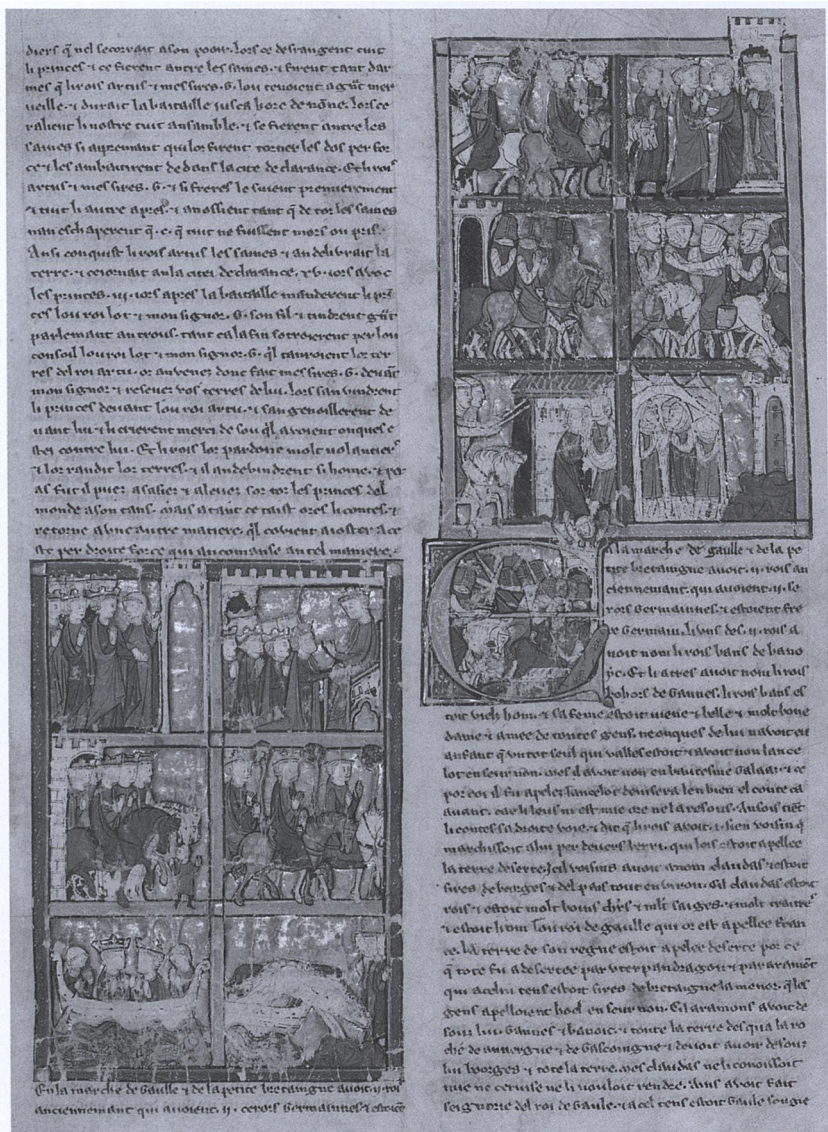 diers q̄ nel secorrait a son pooir. lors ce desrangent tuit
li princes ⁊ ce fierent antre les saines. ⁊ firent tant dar
mes q̄ li rois artus ⁊ mes sires .G. lou tenoient a g̃nt mer
ueille. ⁊ durait la bataille iusca hore de none. lors ce
ralient li nostre tuit ansamble. ⁊ se fierent antre les
saines si apremant qui lor firent torner les dos per for
ce ⁊ les ambatirent de dans la cite de clarance. Et li rois
artus ⁊ mes sires .G. ⁊ si freres le suient premierement
⁊ tuit li autre apres. ⁊ an ossient tant q̄ de toz les saines
nan eschaperent q̄ .c. q̄ tuit ne fuissent mors ou pris.
Ansi conquist li rois artus les saines ⁊ an deliurait la
terre. ⁊ ceiornait an la citei de clarance .xv. iors avoc
les princes. .iij. iors apres la bataille manderent li prĩ
ces lou roi lot ⁊ mon signor .G. son fil ⁊ tindrent g̃nt
parlemant antrous. tant ca la fin sotroierent per lou
consoil lou roi lot ⁊ mon signor .G. q̃l tanroient lor ter
res del roi artu. or an venez donc fait mes sires .G. deuãt
mon signor ⁊ reseuez vos terres de lui. lors san vindrent
li princes deuant lou roi artu. ⁊ san genoillerent de
uant lui ⁊ li crierent merci de sou q̃l avoient onques e
stei contre lui. Et li rois lor pardone molt volantiers
⁊ lor randit lor terres. ⁊ il an devindrent si home. ⁊ per
as fut il puez asasier ⁊ aleuez sor toz les princes del
monde a son tans. mais a tant ce taist ores li contes. ⁊
retorne a une autre matiere. q̃l covient a noster a ce
ste per droite force qui ancomanse an tel maniere.
En la marche de Gaulle ⁊ de la petite bretaingne avoit .ij. rois
anciennemant qui avoient .ij. serors Germainnes ⁊ estoiẽt
a la marche de gaulle ⁊ de la pe
tite bretaingne avoit .ij. rois an
ciennemant. qui avoient .ij. se
rors Germainnes. ⁊ estoient fre
re Germain. li uns des .ij. rois a
voit nom li rois bans de beno
yc. Et li atres avoit nom li rois
bohors de Gannes. li rois bans es
toit viels hom. ⁊ sa feme estoit juene ⁊ belle ⁊ molt bone
dame ⁊ amee de toutes gens. ne onques de lui n avoit eu
anfant q̄ un tot seul qui valles estoit ⁊ avoit non lance
lot en seur non. mes il avoit non en bautesme Galaaz. ⁊ ce
por coi il fu apelez lancelot deuisera len bien el conte ca
avant. car li leus ni est mie ore ne la resons. Ansois tiẽt
li contes sa droite voie. ⁊ dit q̄ li rois avoit .i. sien voisin q̄
marchissoit a lui per devers berri. qui lors estoit apellee
la terre deserte. Icil voisins avoit a nom claudas ⁊ estoit
sires de borges ⁊ del pais tout environ. Cil claudas estoit
rois ⁊ estoit molt bouns chrs ⁊ mlt saiges. ⁊ molt traitres
⁊ estoit hom lou roi de gaulle qui or est apellee fran
ce. la terre de son regne estoit apelee deserte por ce
q̄ tote fu adesertee par uter pandragon ⁊ par aramõt
qui a celui tens estoit sires de bretaigne la menor. q̄ les
gens apelloient hoel en seur non. Cil aramons avoit de
souz lui. Gannes ⁊ banoic. ⁊ toute la terre des qua la ro
che de auvergne ⁊ de Gascoingne ⁊ devoit avoir desouz
lui borges ⁊ tote la terre. mes claudas ne li conoissoit
mie ne ceruise ne li vouloit rendre. Ains avoit fait
seignorie del roi de Gaule. ⁊ a cel tens estoit Gaule sougie